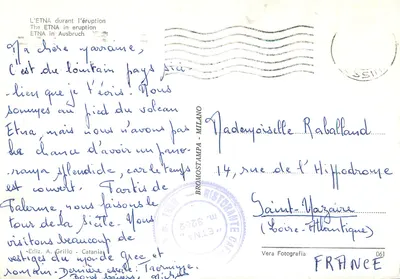 L'ETNA durant l'éruption
The ETNA in eruption
ETNA in Ausbruch
Ma chère marraine,
C'est du lointain pays sici-
lien que je t'écris. Nous
sommes au pied du volcan
Etna, mais nous n'avons pas
la chance d'avoir un pano-
rama splendide, car le temps
est couvert. Partis de
Palerme, nous faisons le
tour de la Sicile. Nous
visitons beaucoup de
vestiges du grec et
romain. Dernière escale : Taormine.
Ediz. A. Grillo - Catania
BROMOSTAMPA - MILANO
RISTORANTE
ETNA
Mademoiselle Raballand
14, rue de l'Hippodrome
Saint-Nazaire
(Loire-Atlantique)
Vera Fotografia
FRANCE